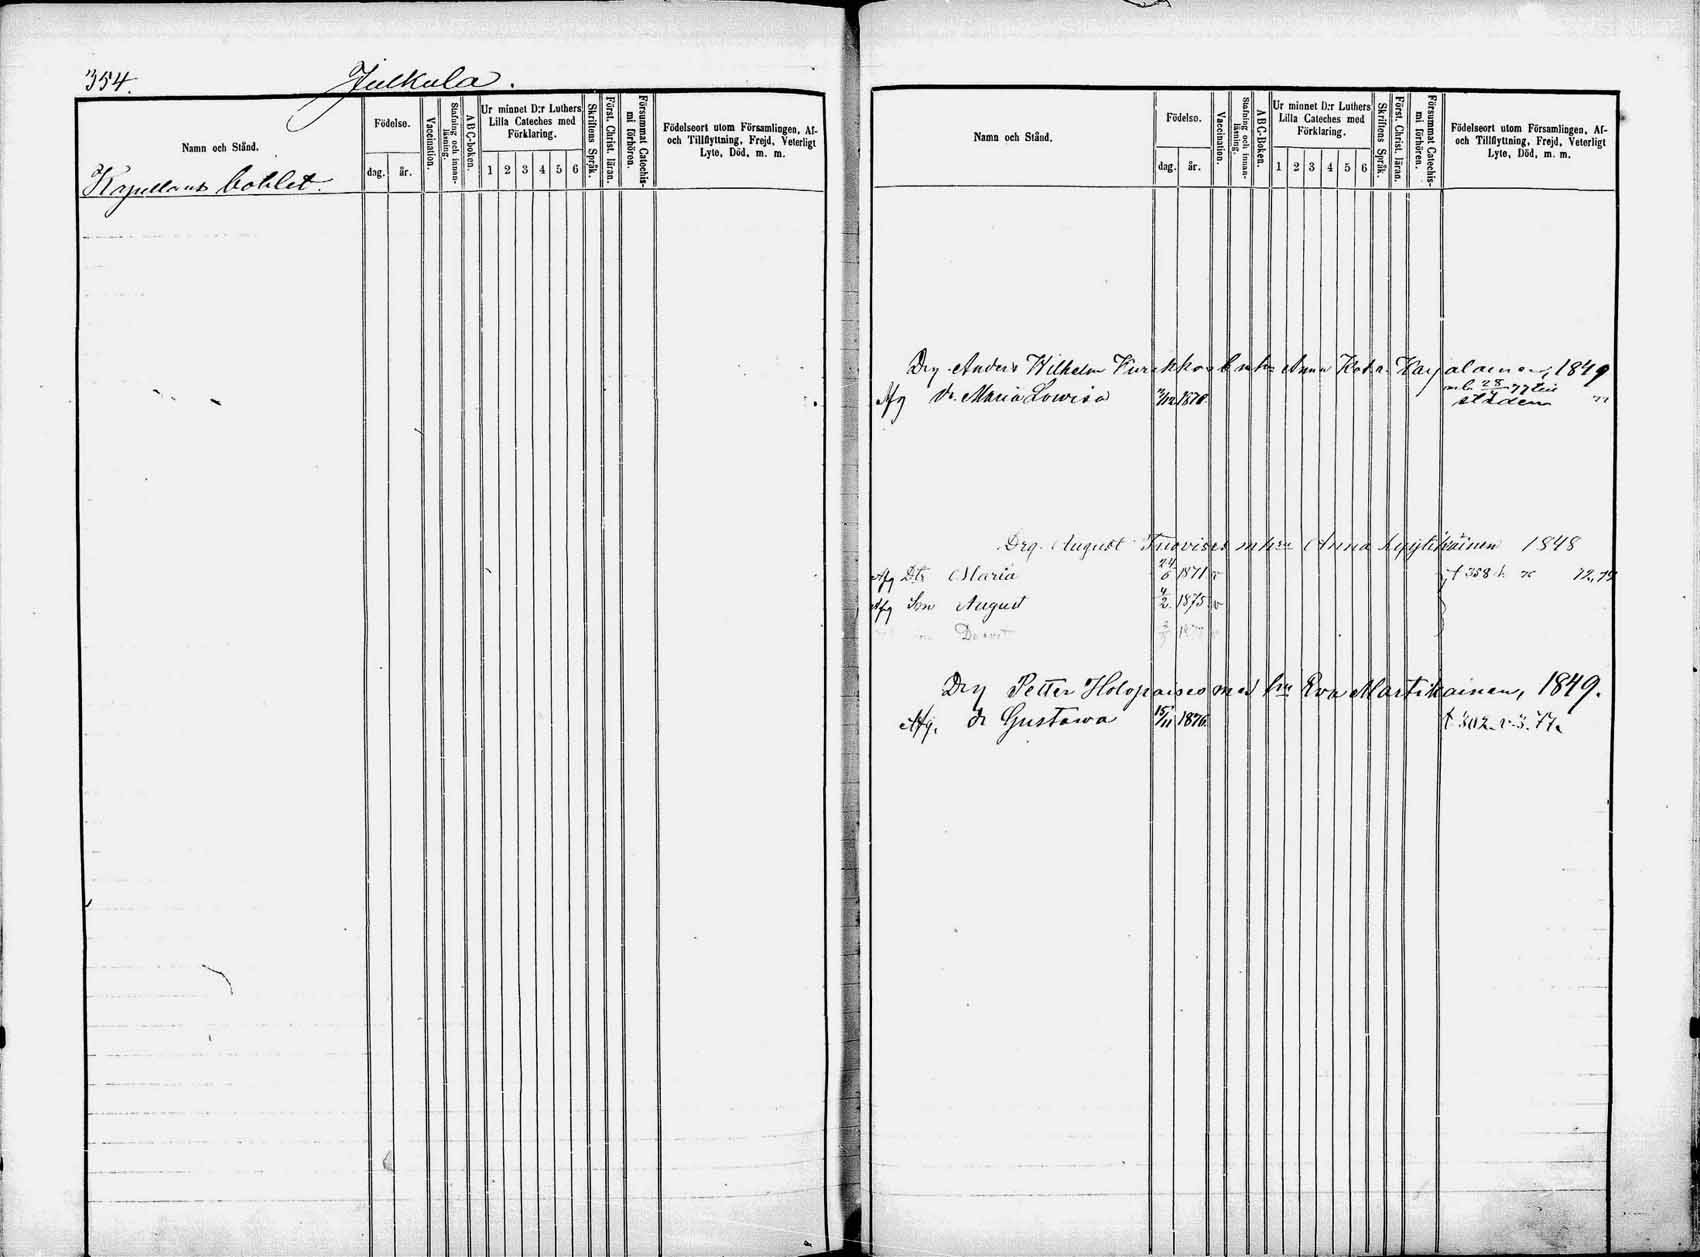 354. Julkula.
Namn och Stånd.
Födelse.
dag. år.
Vaccination.
Stafning och innanläsning.
ABC-boken.
Ur minnet D:r Luthers
Lilla Cateches med
Förklaring.
1 2 3 4 5 6
Skriftens Språk.
Först. Christ. läran.
Försummat Catechismi förhören.
Födelseort utom Församlingen, Af-
och Tillflyttning, Frejd, Veterligt
Lyte, Död, m. m.
Kapellans bohlet.
Namn och Stånd.
Födelse.
dag. år.
Vaccination.
Stafning och innanläsning.
ABC-Boken.
Ur minnet D:r Luthers
Lilla Cateches med
Förklaring.
1 2 3 4 5 6
Skriftens Språk.
Först. Christ. läran.
Försummat Catechismi förhören.
Födelseort utom Församlingen, Af-
och Tillflyttning, Frejd, Veterligt
Lyte, Död, m. m.
Drg Anders Wilhelm Anna Kat:a 1849
Afg dr. Maria Lowisa 28 77 till
staden
Drg. August m hu Anna 1848
Afg Dtr Maria 24/6 1871 v
Afg Son August 4/2 1875 v
Drg Petter med hu Eva Martikainen, 1849.
Afg. dr Gustawa 15/11 1876. t 302 v 3. 77.